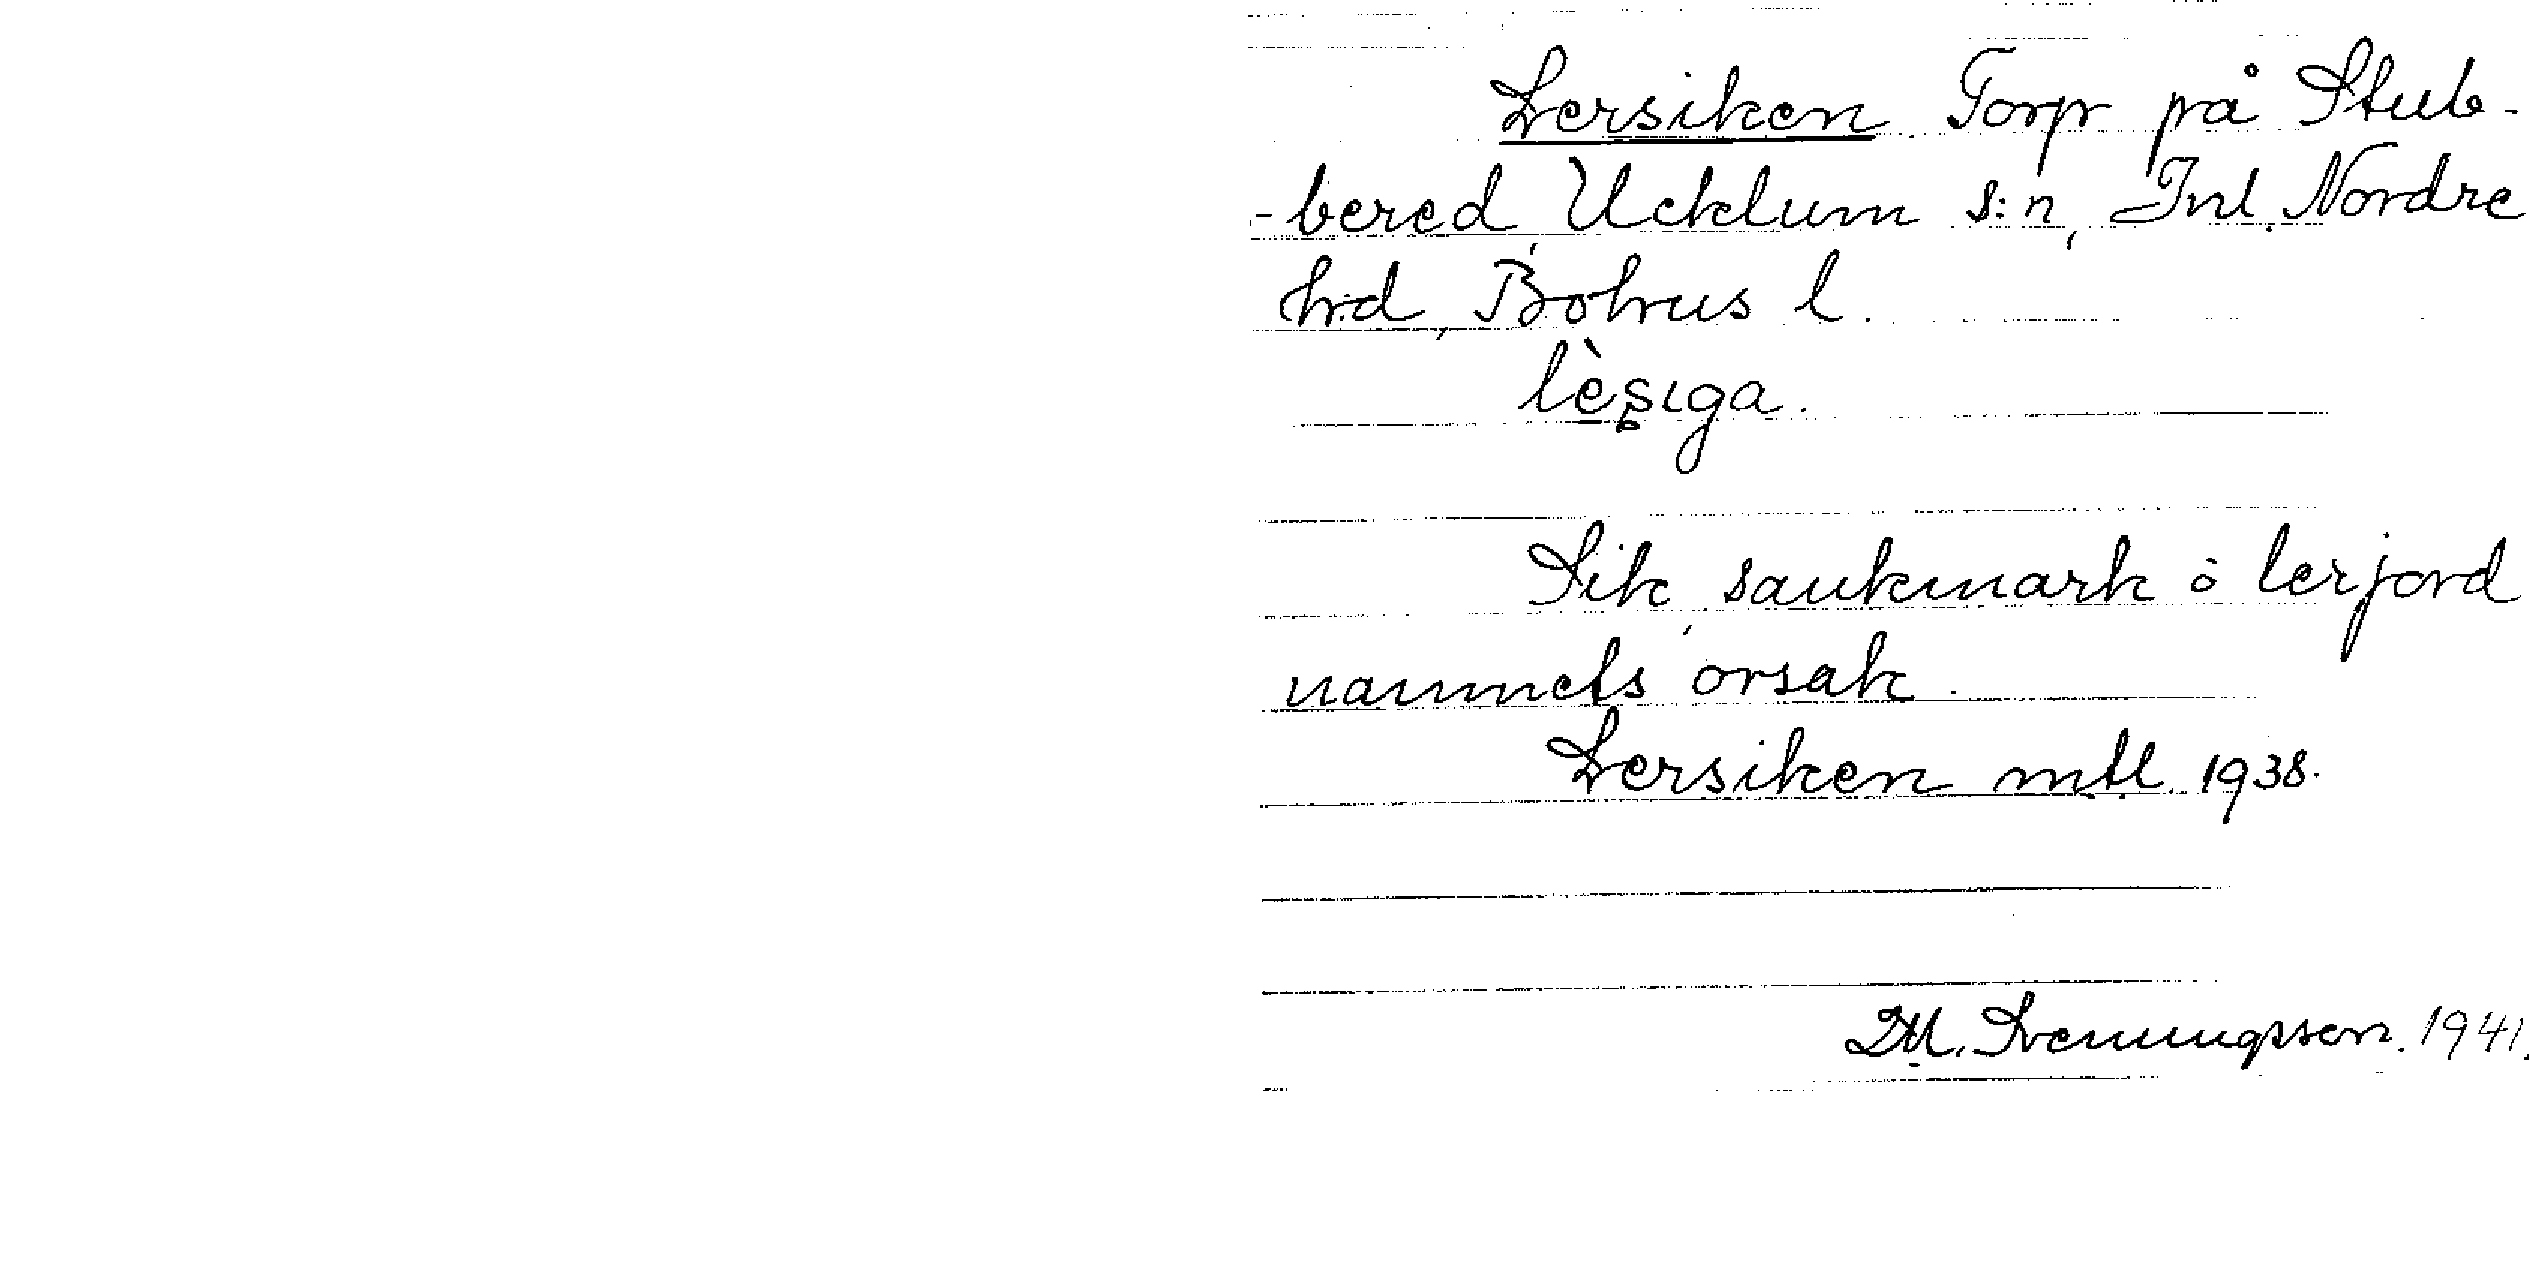 Lersiken Torp på Stub-
-bered, Ucklum s:n, Inl. Nordre
h:d, Bohus l.
lèsiga.
Sik, sankmark o lerjord
namnets orsak.
Lersiken mtl. 1938.
D.M. Svenningsson. 1941.